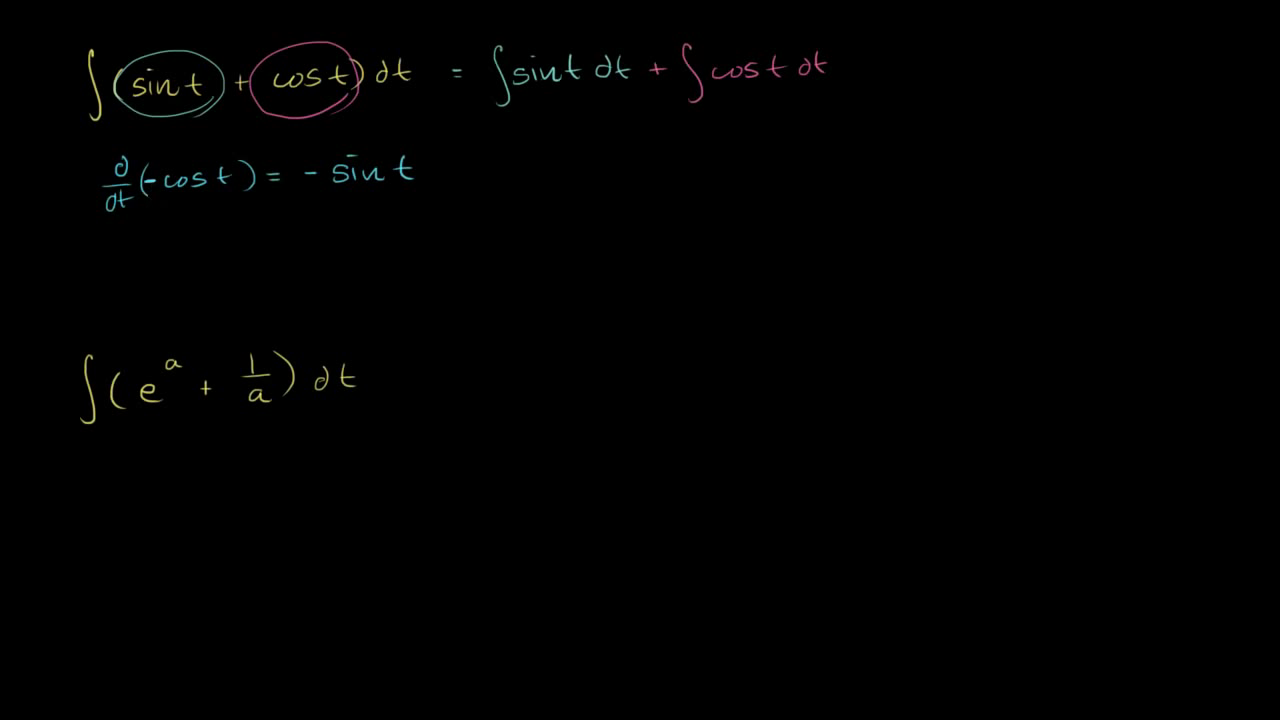 ∫(sin t + cos t) dt = ∫sin t dt + ∫cos t dt
d/dt (-cos t) = - sin t
∫(e^a + 1/a) dt